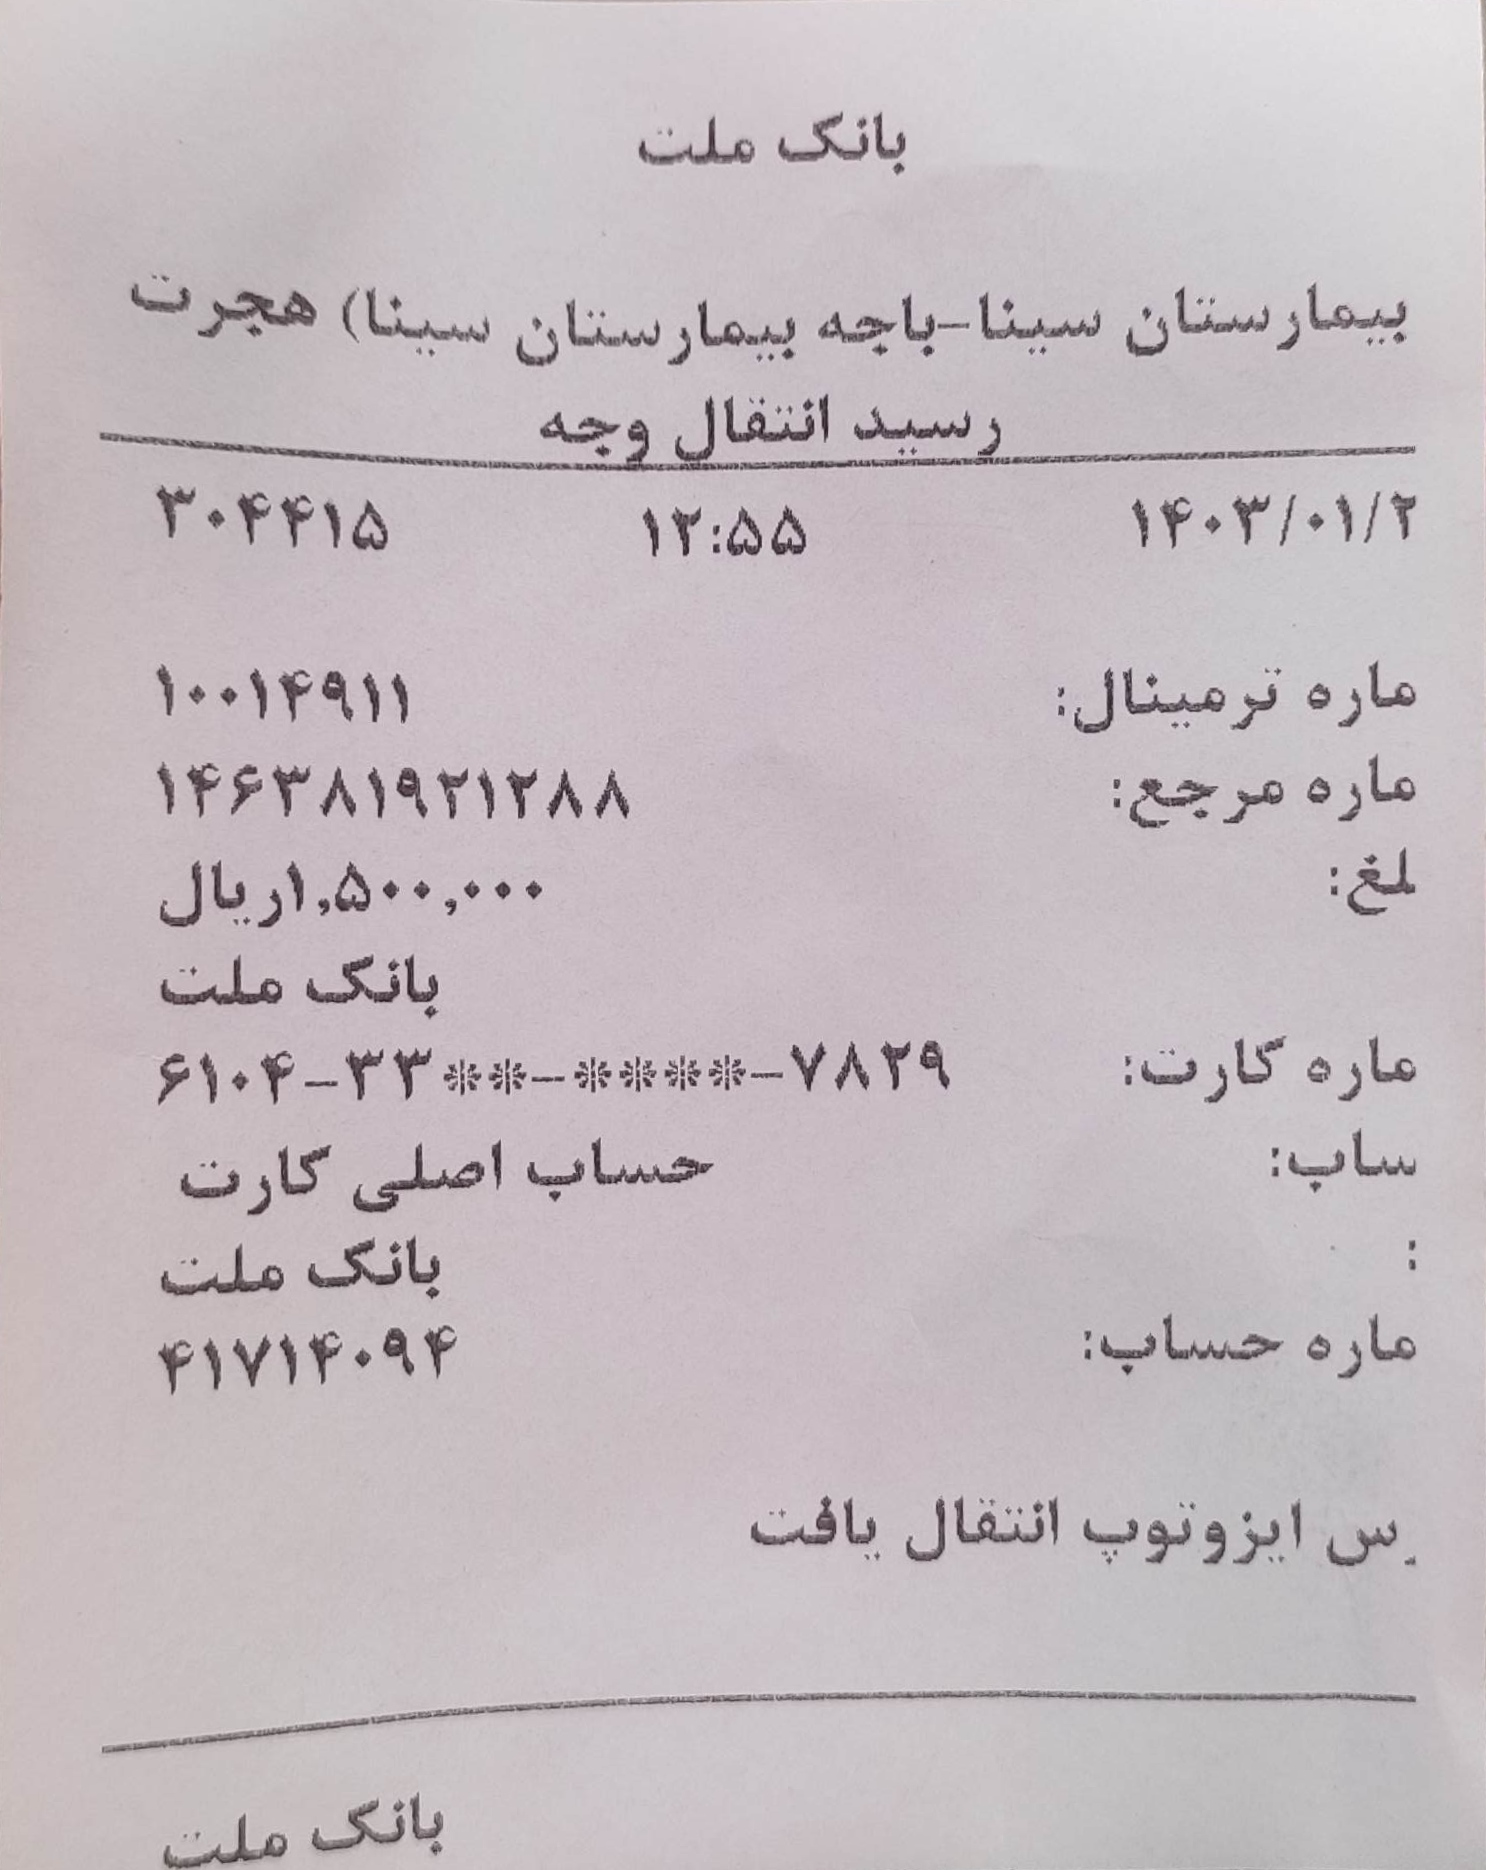 بانک ملت
بیمارستان سینا-باجه بیمارستان سینا) هجرت
رسید انتقال وجه
۱۴۰۳/۰۱/۲ ۱۲:۵۵ ۳۰۴۴۱۵
ماره ترمینال: ۱۰۰۱۴۹۱۱
ماره مرجع: ۱۴۶۳۸۱۹۲۱۲۸۸
لمغ: ۱,۵۰۰,۰۰۰ریال
بانک ملت
ماره کارت: ۶۱۰۴-۳۳**-****-۷۸۲۹
ساب: حساب اصلی کارت
: بانک ملت
ماره حساب: ۴۱۷۱۴۰۹۴
س ایزوتوپ انتقال یافت
بانک ملت